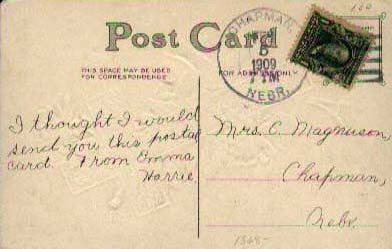 Post Card
THIS SPACE MAY BE USED
FOR CORRESPONDENCE
FOR ADDRESS ONLY
CHAPMAN,
5
1909
NEBR.
I thought I would
send you this postal
card. From Emma
Mrs. C. Magnuson,
Chapman,
Nebr.